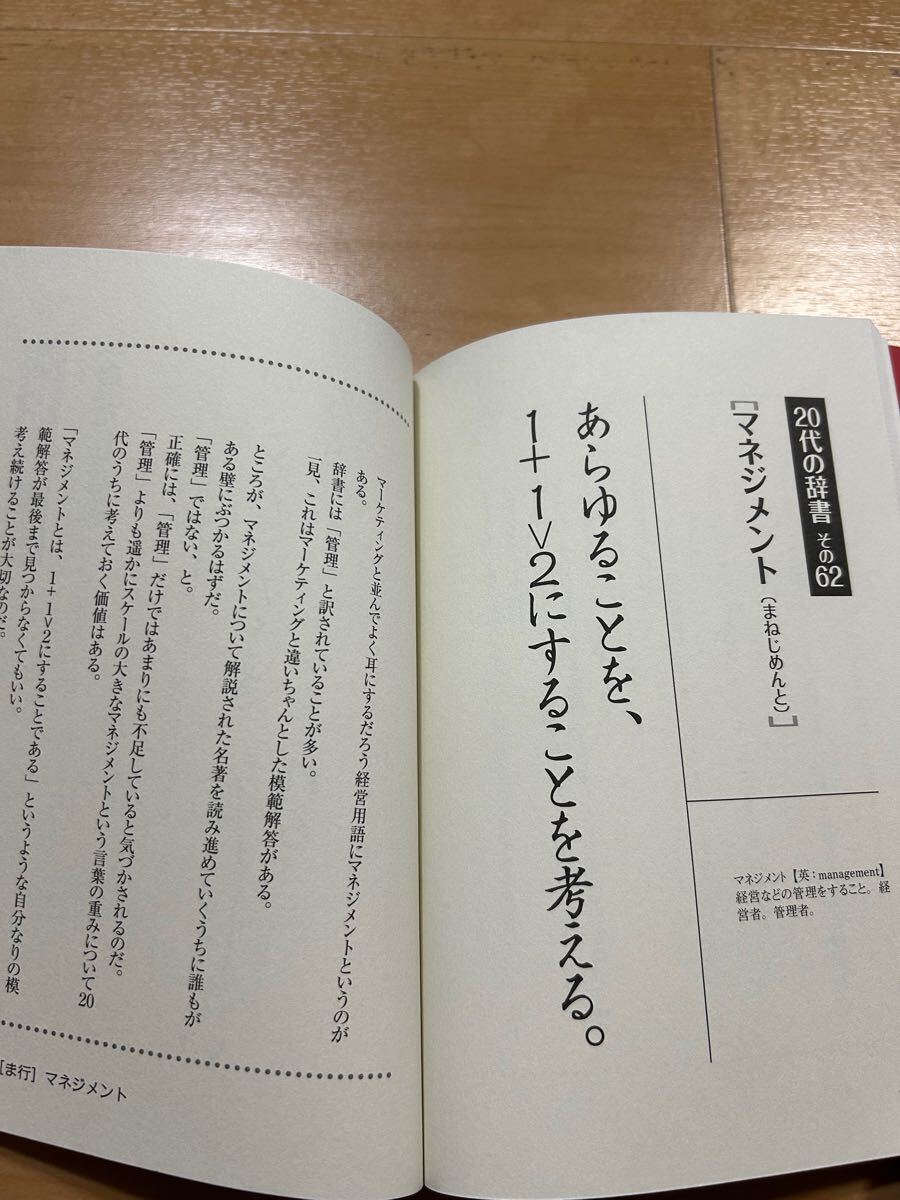 20代の辞書 その62
[マネジメント(まねじめんと)]
マネジメント【英:management】
経営などの管理をすること。経
営者。管理者。
あらゆることを、
1+1>2にすることを考える。
マーケティングと並んでよく耳にするだろう経営用語にマネジメントというのが
ある。
辞書には「管理」と訳されていることが多い。
一見、これはマーケティングと違いちゃんとした模範解答がある。
ところが、マネジメントについて解説された名著を読み進めていくうちに誰もが
ある壁にぶつかるはずだ。
「管理」ではない、と。
正確には、「管理」だけではあまりにも不足していると気づかされるのだ。
「管理」よりも遥かにスケールの大きなマネジメントという言葉の重みについて20
代のうちに考えておく価値はある。
「マネジメントとは、1+1>2にすることである」というような自分なりの模
範解答が最後まで見つからなくてもいい。
考え続けることが大切なのだ。
[ま行] マネジメント